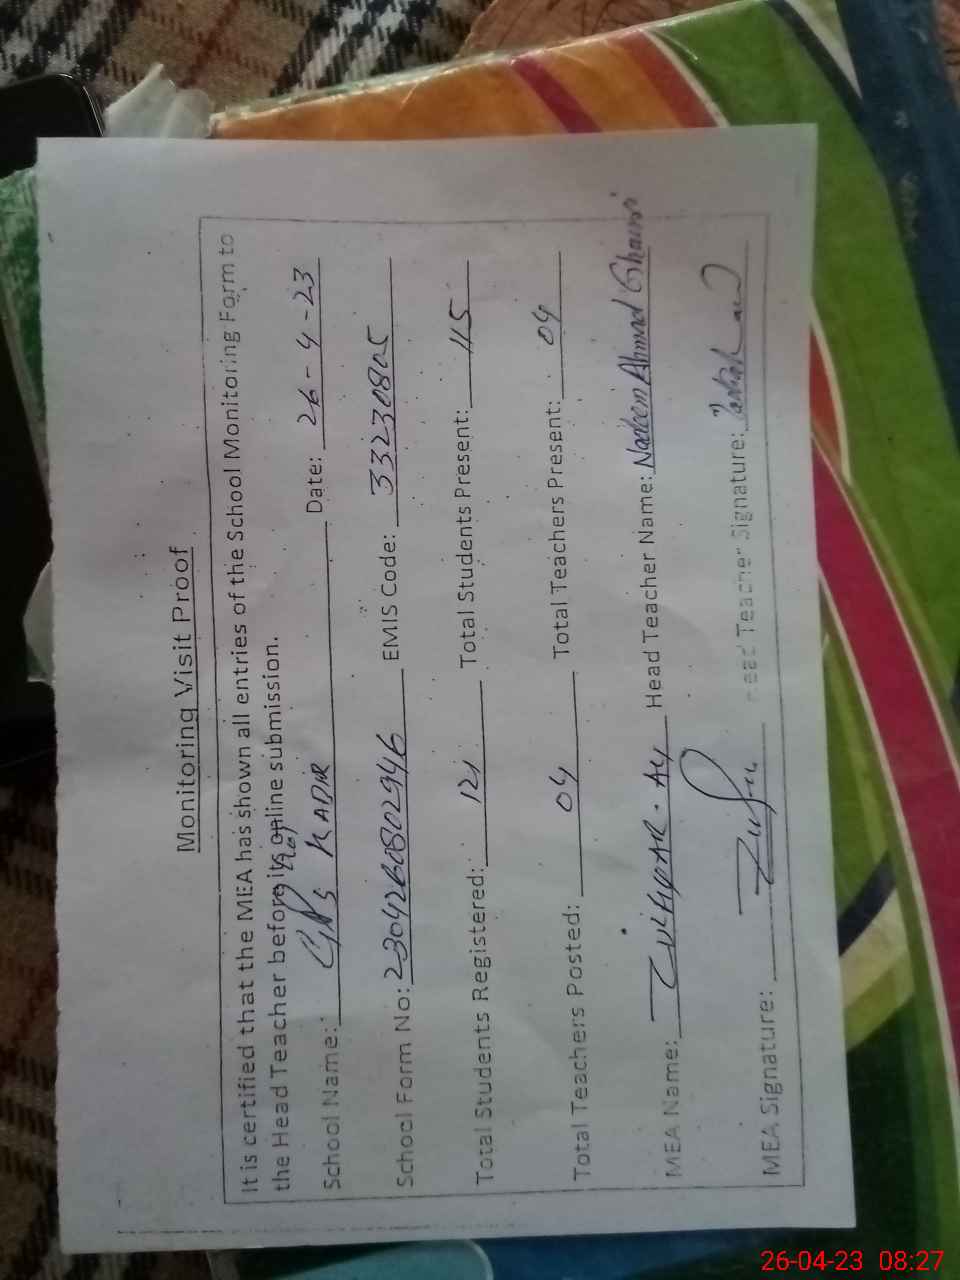 Monitoring Visit Proof
It is certified that the MEA has shown all entries of the School Monitoring Form to
the Head Teacher before its online submission.
School Name: GPS KADIR Date: 26-4-23
School Form No: 2304260802946 EMIS Code: 33230805
Total Students Registered: 121 Total Students Present: 115
Total Teachers Posted: 04 Total Teachers Present: 04
MEA Name: ZULFIQAR. ALI Head Teacher Name: Nadeem Ahmad Ghauri
MEA Signature: Head Teacher Signature:
26-04-23 08:27